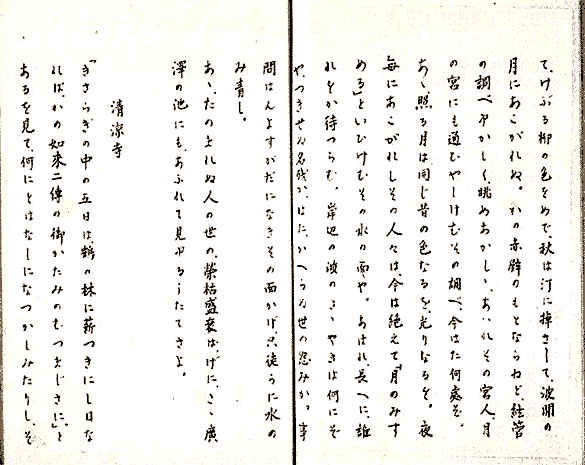 て、けぶる柳の色をめで、秋は汀に棹さして、波間の
月にあこがれぬ。かの赤壁のもとならねど、絃管
の調べゆかしく、眺めあかしゝ、あはれその宮人、月
の宮にも通ひやしけむその調べ、今はた何處ぞ。
あゝ照る月は同じ昔の色なるを、光りなるを。夜
毎にあこがれしその人々は、今は絶えて「月のみす
める」といひけむその水の面や。あはれ、長へに、誰
れをか待つらむ。岸辺の波のさゝやきは何にぞ
や、つきせぬ名残か、はた、かへらぬ世の怨みか。事
問はんよすがだになきその面かげ、只徒らに水の
み青し。
あゝ、たのまれぬ人の世の、榮枯盛衰は、げに、こゝ廣
澤の池にも、あふれて見ゆるうたてさよ。
清涼寺
「きさらぎの中の五日は、鶴の林に薪つきにし日な
れば、かの如來二傳の御かたみのむつまじさに」と
あるを見て、何にとはなしになつかしみたりし、そ